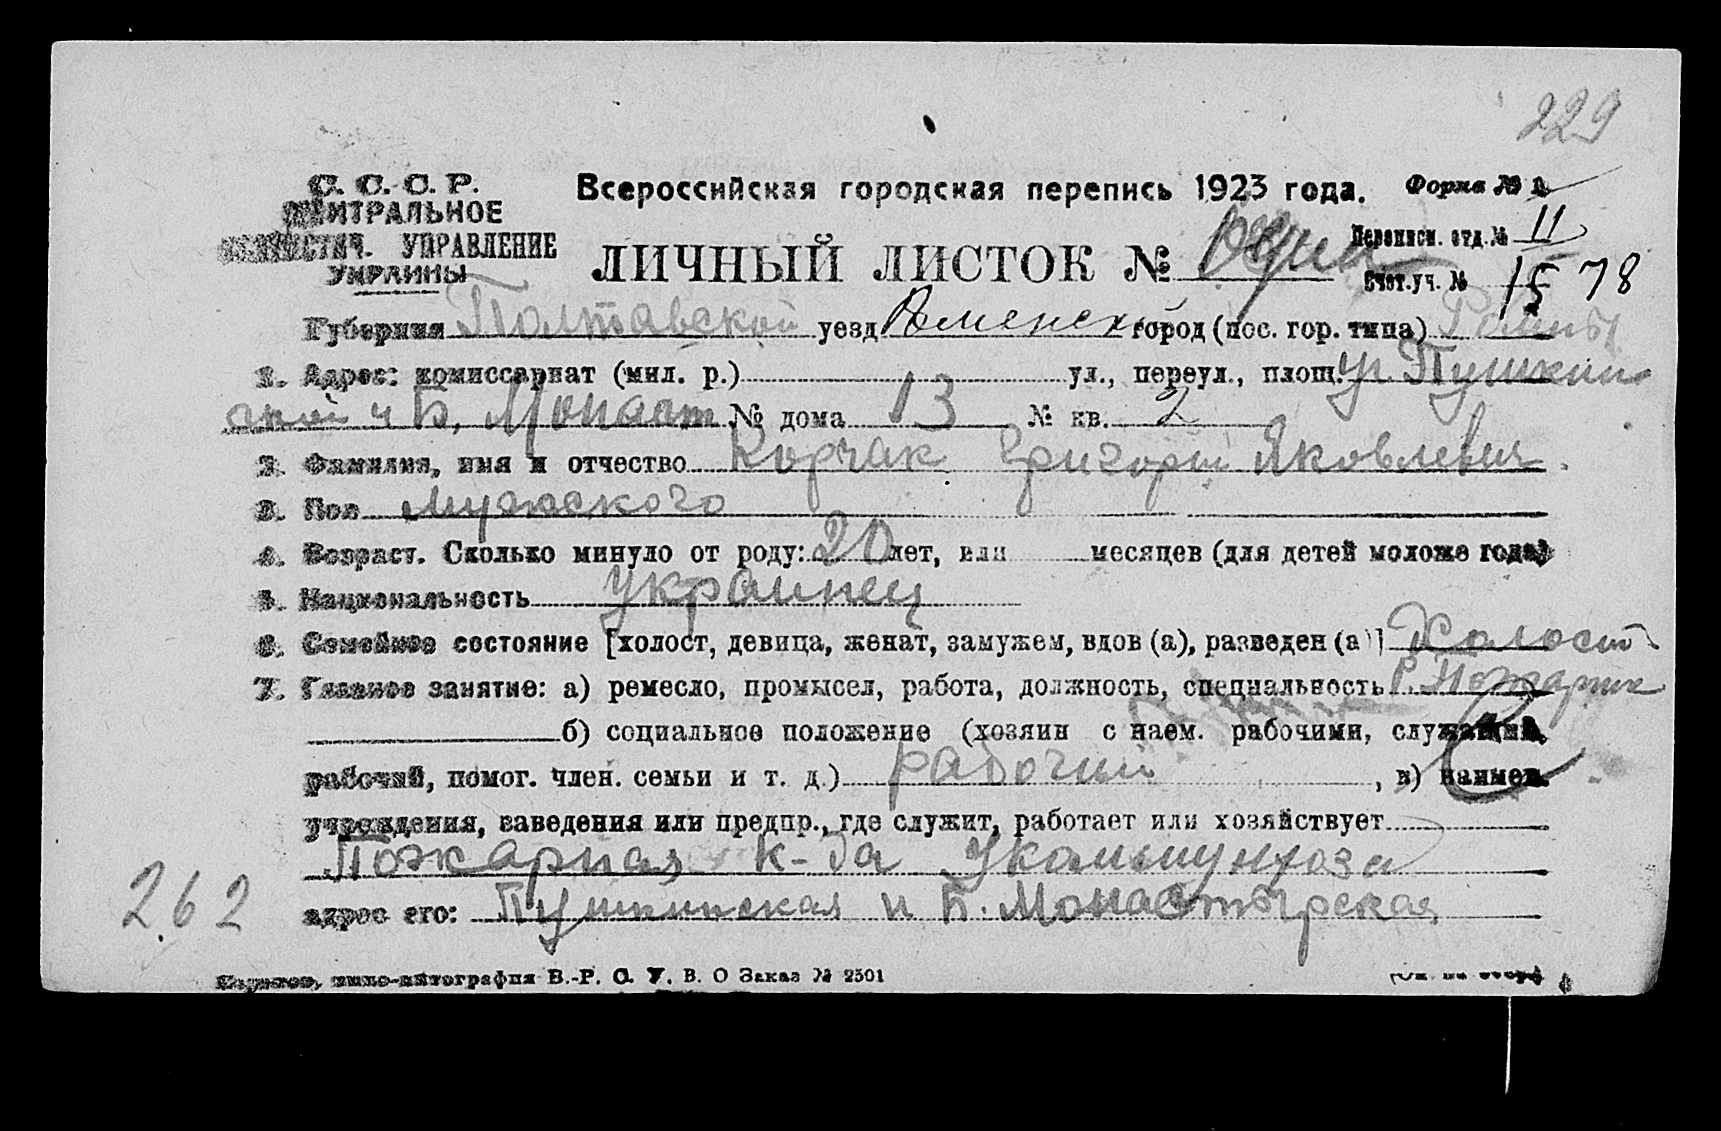 229
С. С. С. Р.
ЦЕНТРАЛЬНОЕ
СТАТИСТИЧ. УПРАВЛЕНИЕ
УКРАИНЫ
Всероссийская городская перепись 1923 года.
Форма № 1
ЛИЧНЫЙ ЛИСТОК №
Переписн. отд. № II
Счет. уч. № 15 78
Губерния Полтавской уезд Роменский город (пос. гор. типа) Ромны
1. Адрес: комиссариат (мил. р.) ул., переул., площ. уг. Пушкин-
ской и Б. Монаст № дома 13 № кв. 2
2. Фамилия, имя и отчество Корчак Григорий Яковлевич.
3. Пол мужского
4. Возраст. Сколько минуло от роду: 20 лет, или месяцев (для детей моложе года)
5. Национальность украинец
6. Семейное состояние [холост, девица, женат, замужем, вдов (а), разведен (а)] Холост
7. Главное занятие: а) ремесло, промысел, работа, должность, специальность
б) социальное положение (хозяин с наем. рабочими, служащий,
рабочий, помог. член. семьи и т. д.) рабочий, в) наимен.
учреждения, заведения или предпр., где служит, работает или хозяйствует
Пожарная к-да
262
адрес его: Пушкинская и Б. Монастырская
типо-литография В.-Р. С. У. В. О Заказ № 2501